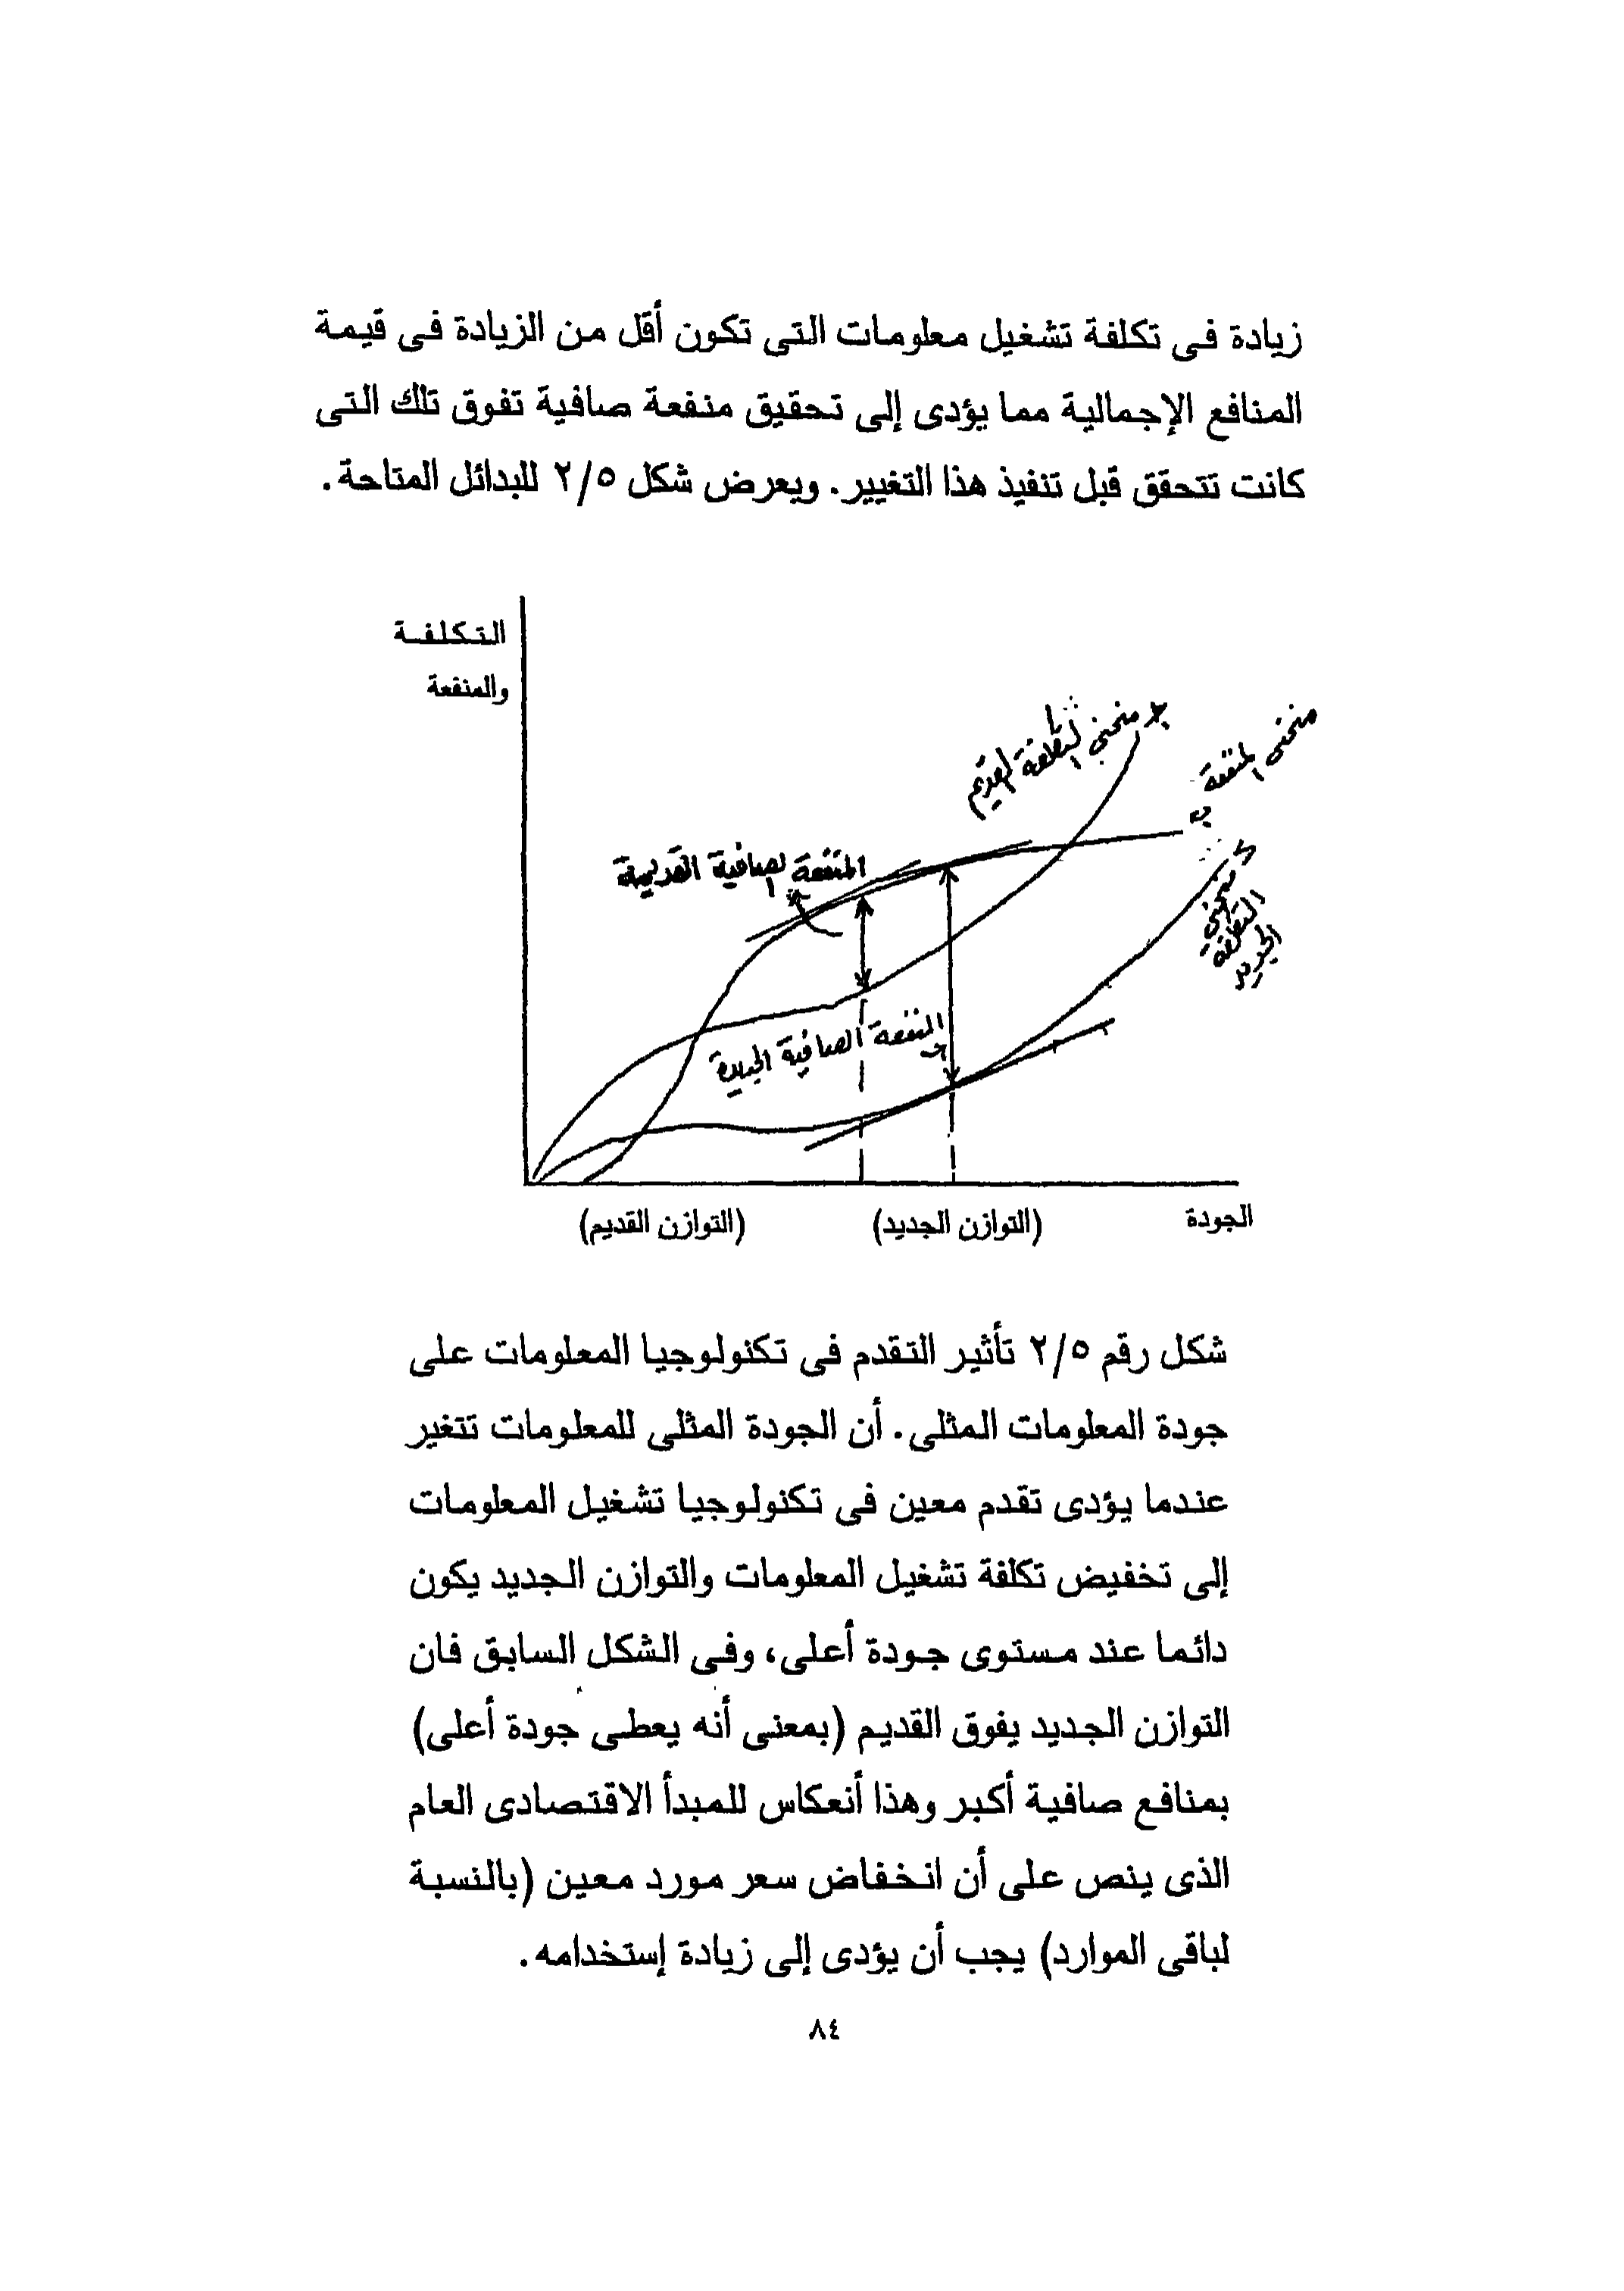 زيادة فى تكلفة تشغيل معلومات التى تكون أقل من الزيادة فى قيمة
المنافع الإجمالية مما يؤدى إلى تحقيق منفعة صافية تفوق تلك التى
كانت تتحقق قبل تنفيذ هذا التغيير. ويعرض شكل ٢/٥ للبدائل المتاحة.
التكلفة
والمنفعة
جـ منحنى التكلفة القديم
منحنى المنفعة
ب
المنفعة الصافية القديمة
د منحنى
التكلفة
الجديد
المنفعة الصافية الجديدة
(التوازن القديم) (التوازن الجديد) الجودة
شكل رقم ٢/٥ تأثير التقدم فى تكنولوجيا المعلومات على
جودة المعلومات المثلى. أن الجودة المثلى للمعلومات تتغير
عندما يؤدى تقدم معين فى تكنولوجيا تشغيل المعلومات
إلى تخفيض تكلفة تشغيل المعلومات والتوازن الجديد يكون
دائما عند مستوى جودة أعلى، وفى الشكل السابق فان
التوازن الجديد يفوق القديم (بمعنى أنه يعطى جودة أعلى)
بمنافع صافية أكبر وهذا أنعكاس للمبدأ الاقتصادى العام
الذى ينص على أن انخفاض سعر مورد معين (بالنسبة
لباقى الموارد) يجب أن يؤدى إلى زيادة إستخدامه.
٨٤